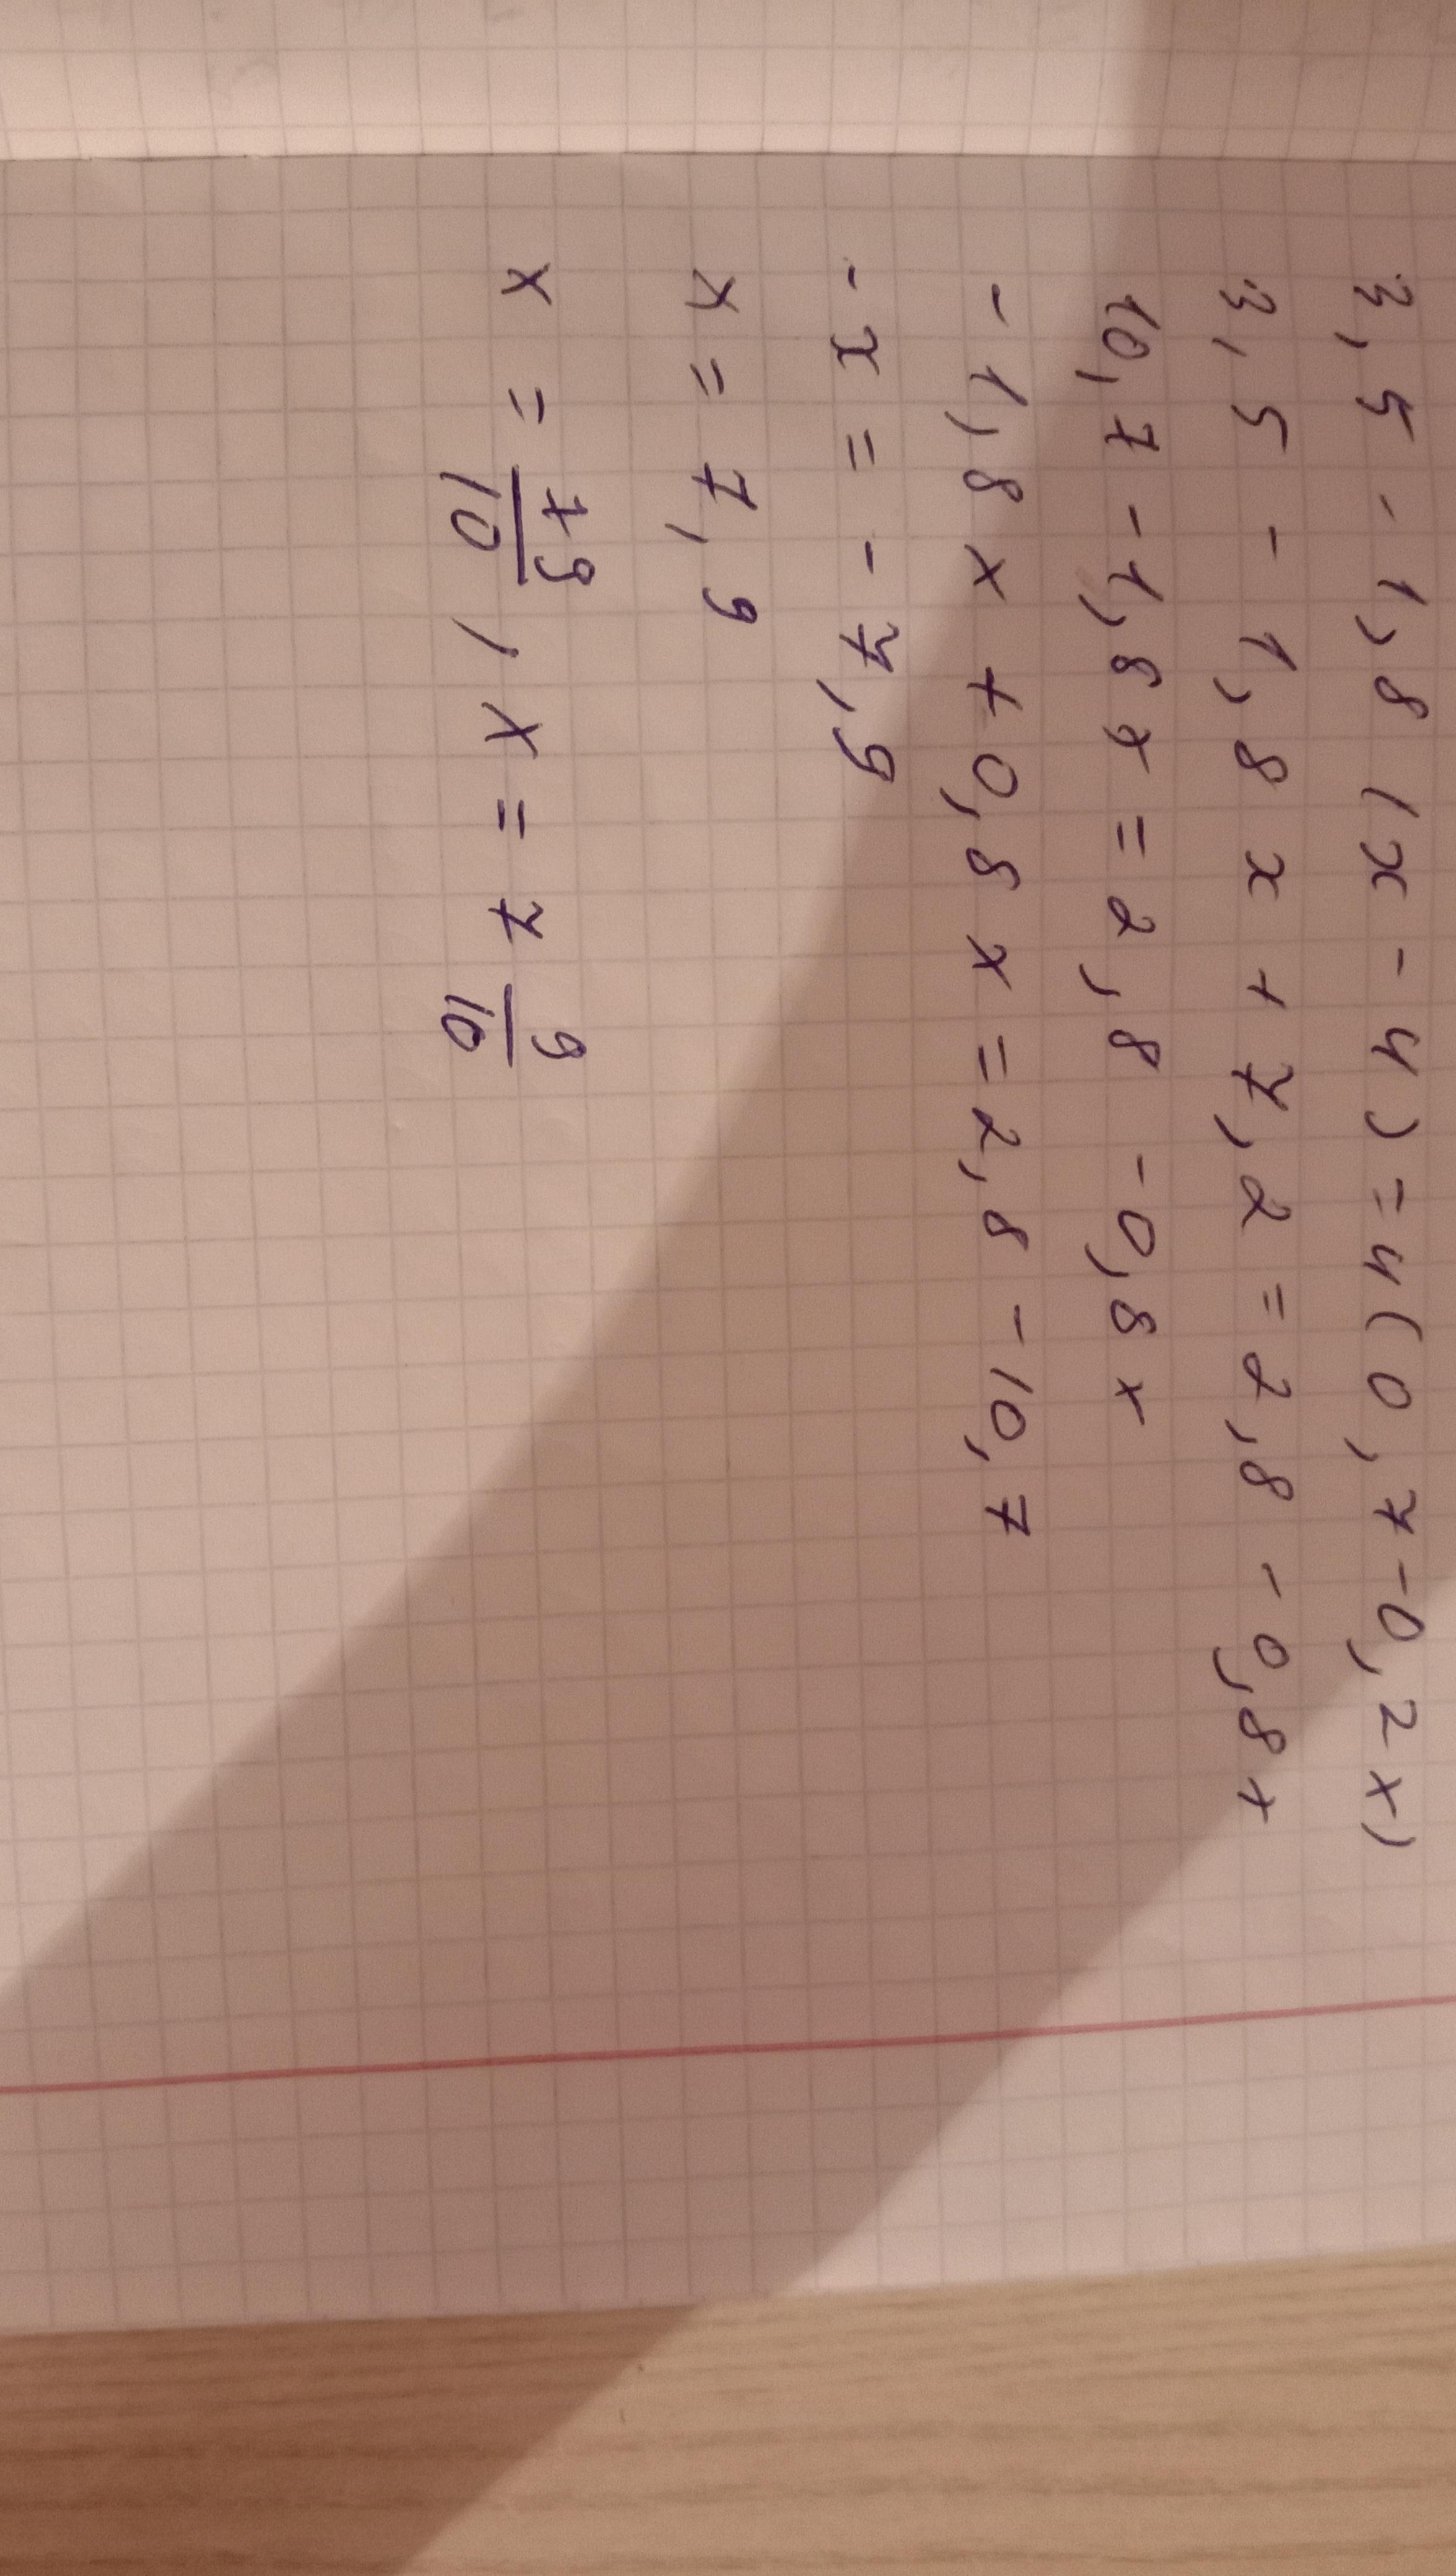 3,5 - 1,8 (x - 4) = 4(0,7 - 0,2x)
3,5 - 1,8x + 7,2 = 2,8 - 0,8x
10,7 - 1,8x = 2,8 - 0,8x
- 1,8x + 0,8x = 2,8 - 10,7
- x = - 7,9
x = 7,9
x = 79/10 , x = 7 9/10